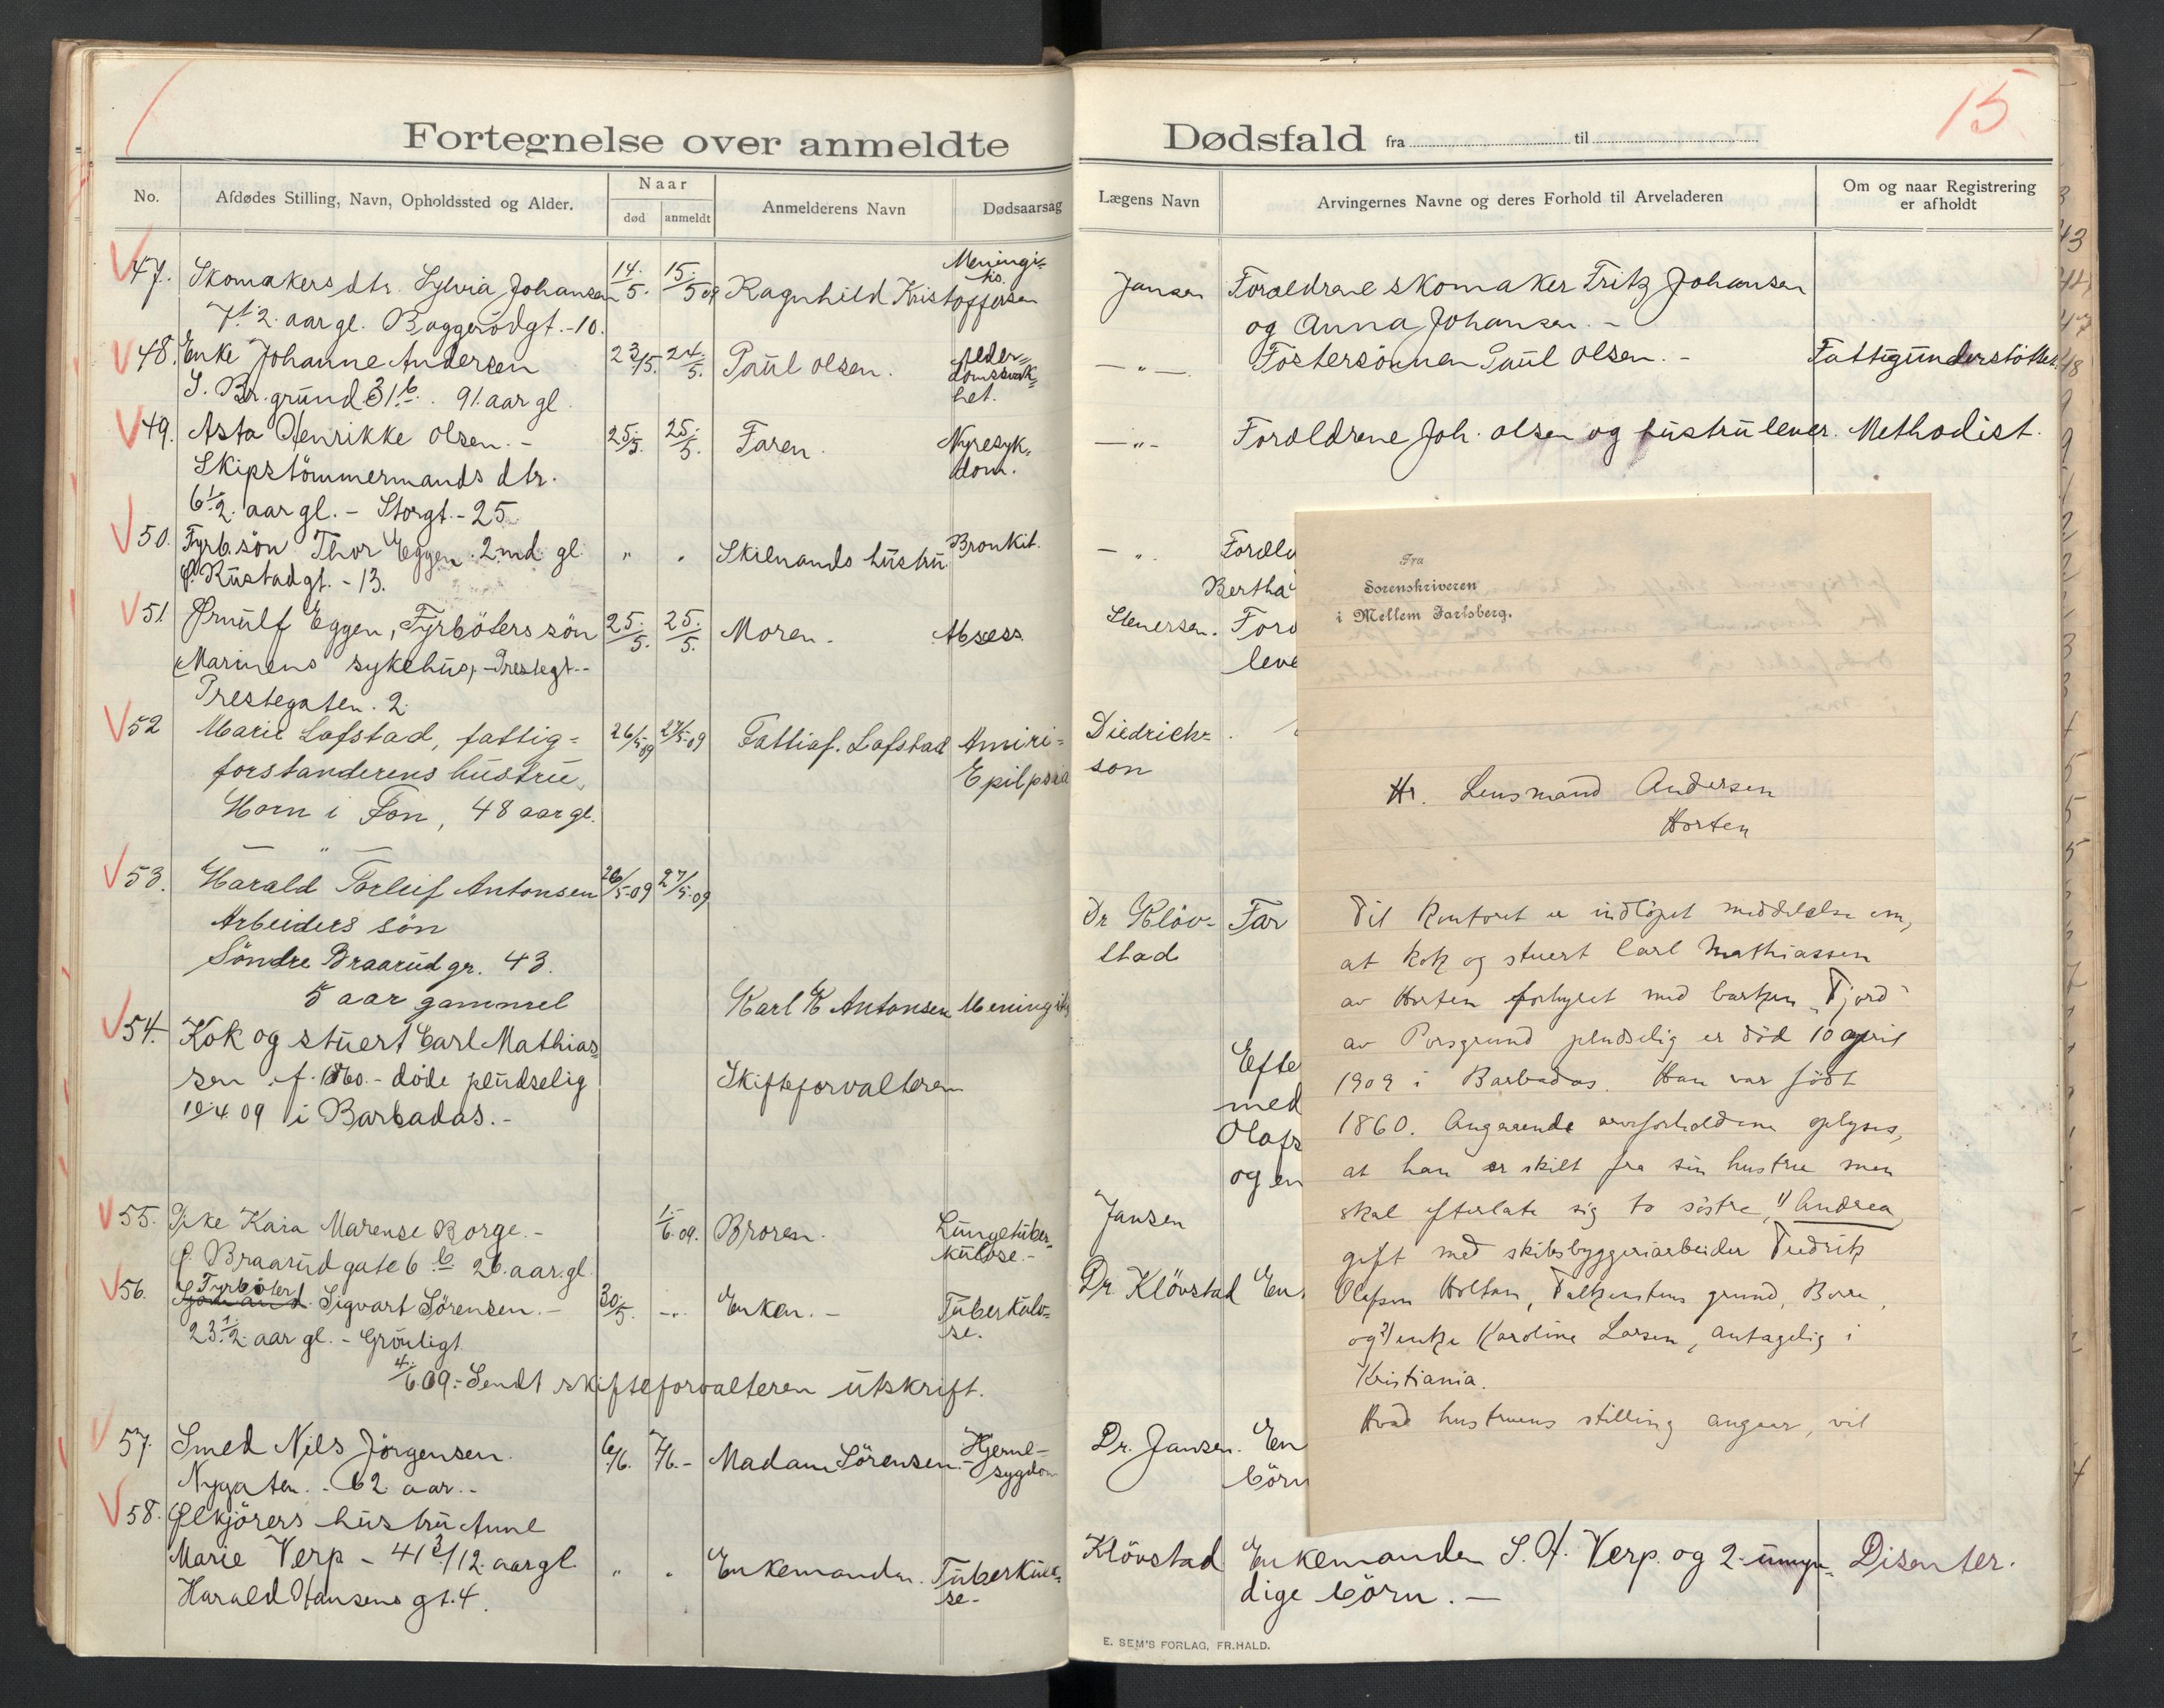 15
Fortegnelse over anmeldte Dødsfald fra til
No.
Afdødes Stilling, Navn, Opholdssted og Alder.
Naar
død
anmeldt
Anmelderens Navn
Dødsaarsag
Lægens Navn
Arvingernes Navne og deres Forhold til Arveladeren
Om og naar Registrering
er afholdt
47. Skomakers dtr. Sylvia Johansen 14/5. 15/5 09 Ragnhild Kristoffersen Meningi-
tis.
7 1/2 aar gl. Baggerödgt. - 10.
Jansen Forældrene skomaker Fritz Johansen
og Anna Johansen. -
48. Enke Johanne Andersen 23/5. 24/5. Paul Olsen. Alder-
domssvak-
het.
S. Br. grund 31 b. 91. aar gl.
— " — Fostersönnen Paul Olsen. - Fattigunderstöttet.
49. Asta Henrikke Olsen. - 25/5. 25/5. Faren. Nyresyk-
dom.
Skipstömmermands dtr.
6 1/2. aar gl. - Storgt. - 25
— " - Forældrene Joh. Olsen og hustru lever. Methodist.
50. Fyrb. sön Thor Eggen. 2 md. gl. " . Skienands hustru Bronkit.
Ø. Rustadgt. - 13.
— " . Foræld
Bertha
51 Ørnulf Eggen, Fyrböters sön 25/5. 25/5. Moren. Absess
Marinens sykehus, - Prestegt. -
Prestegaten. 2.
Stenersen. Foræ
leve
52 Marie Lofstad, fattig=
forstanderens hustru,
Horn i Fon, 48 aar gl.
26/5-09 27/5-09 Fattigf. Lofstad
Epilpsia
Diedrich=
son
53. Harald Torleif Antonsen 26/5-09 27/5-09
Arbeiders sön
Söndre Braarud gr. 43.
5 aar gammel
Karl E Antonsen Meningitis
Dr Klöv-
stad
Far
54. Kok og stuert Carl Mathias-
sen. f. 1860. - döde pludselig
10/4 09 i Barbados. -
Skifteforvalteren
Efte
med
Olafs
og en
55. Pike Kaia Marense Borge. - 1/6. 09. Broren. Lungetuber-
kulose. -
Ø. Braarud gate 6 b. 26. aar. gl.
Jansen
56. Fyrböter
Sjömand Sigvart Sörensen. - 30/5. - " - Enken. - Tuberkulo-
se.
23 1/2. aar gl. - Grönligt.
Dr. Klövstad En
4/6. 09. - Sendt skifteforvalteren utskrift.
57. Smed Nils Jörgensen. 6/6. 7/6. - Madam Sörensen. - Hjerne-
sygdom
Nygaten. - 62 aar. -
Dr. Jansen. En
börn
58. Ølkjörers hustru Anne
Marie Verp - 41 3/12. aar gl.
Harald Hansens gt. 4.
" . Enkemanden. Tuberkulo-
se-
Klövstad Enkemanden S. A. Verp. og 2. umyn- Disenter.
dige börn. —
Fra
Sorenskriveren
i Mellem Jarlsberg.
Hr. Lensmand Andersen
Horten
Til kontoret er indlöpet meddelelse om,
at kok og stuert Carl Mathiassen
av Horten forhyret med barken "Fjord"
av Porsgrund pludselig er död 10 april
1909 i Barbados. Han var födt
1860. Angaaende arveforholdene oplyses,
at han er skilt fra sin hustru men
skal efterlate sig to söstre, 1) Andrea,
gift med skibsbyggeriarbeider Fredrik
Olafsen Holtan, Falkenstens grund, Borre,
og 2) enke Karoline Larsen, antagelig i
Kristiania.
Hvad hustruens stilling angaar, vil
E. SEM'S FORLAG, FR.HALD.